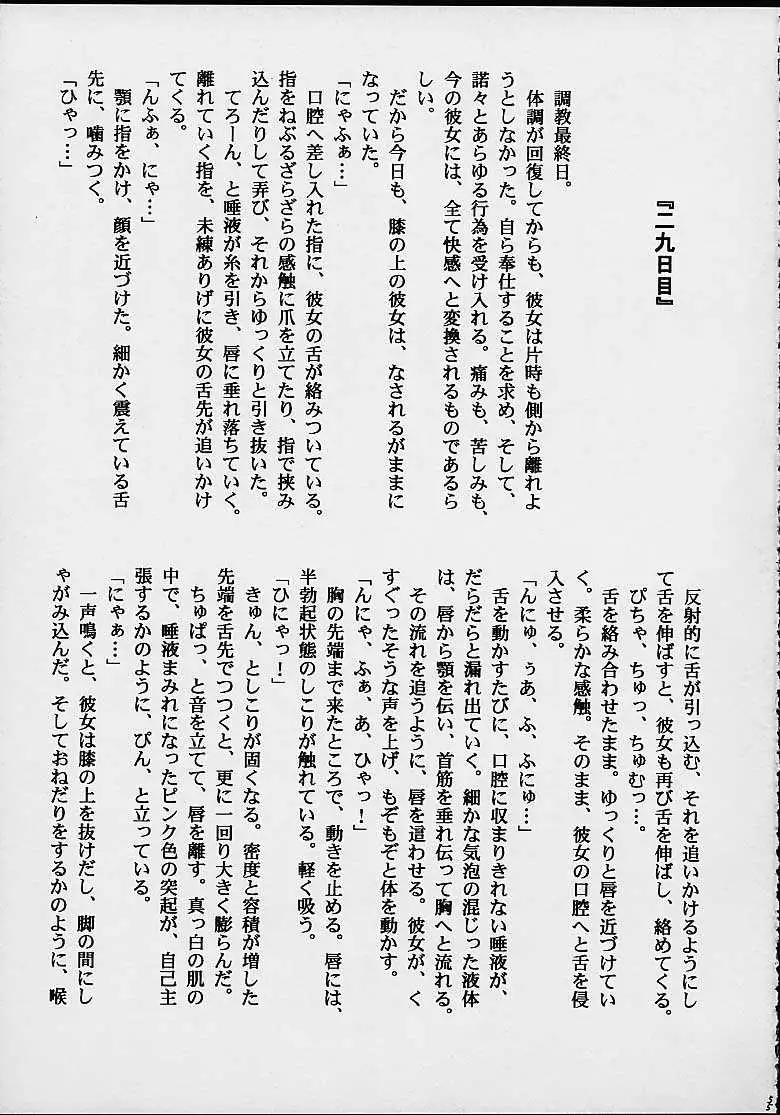 『二九日目』
調教最終日。
体調が回復してからも、彼女は片時も側から離れよ
うとしなかった。自ら奉仕することを求め、そして、
諾々とあらゆる行為を受け入れる。痛みも、苦しみも、
今の彼女には、全て快感へと変換されるものであるら
しい。
だから今日も、膝の上の彼女は、なされるがままに
なっていた。
「にゃふぁ…」
口腔へ差し入れた指に、彼女の舌が絡みついている。
指をねぶるざらざらの感触に爪を立てたり、指で挟み
込んだりして弄び、それからゆっくりと引き抜いた。
てろーん、と唾液が糸を引き、唇に垂れ落ちていく。
離れていく指を、未練ありげに彼女の舌先が追いかけ
てくる。
「んふぁ、にゃ…」
顎に指をかけ、顔を近づけた。細かく震えている舌
先に、噛みつく。
「ひゃっ…」
反射的に舌が引っ込む、それを追いかけるようにし
て舌を伸ばすと、彼女も再び舌を伸ばし、絡めてくる。
ぴちゃ、ちゅっ、ちゅむっ…。
舌を絡み合わせたまま。ゆっくりと唇を近づけてい
く。柔らかな感触。そのまま、彼女の口腔へと舌を侵
入させる。
「んにゅ、ぅあ、ふ、ふにゅ…」
舌を動かすたびに、口腔に収まりきれない唾液が、
だらだらと漏れ出ていく。細かな気泡の混じった液体
は、唇から顎を伝い、首筋を垂れ伝って胸へと流れる。
その流れを追うように、唇を這わせる。彼女が、く
すぐったそうな声を上げ、もぞもぞと体を動かす。
「んにゃ、ふぁ、あ、ひゃっ！」
胸の先端まで来たところで、動きを止める。唇には、
半勃起状態のしこりが触れている。軽く吸う。
「ひにゃっ！」
きゅん、としこりが固くなる。密度と容積が増した
先端を舌先でつつくと、更に一回り大きく膨らんだ。
ちゅぱっ、と音を立てて、唇を離す。真っ白の肌の
中で、唾液まみれになったピンク色の突起が、自己主
張するかのように、ぴん、と立っている。
「にゃぁ…」
一声鳴くと、彼女は膝の上を抜けだし、脚の間にし
ゃがみ込んだ。そしておねだりをするかのように、喉